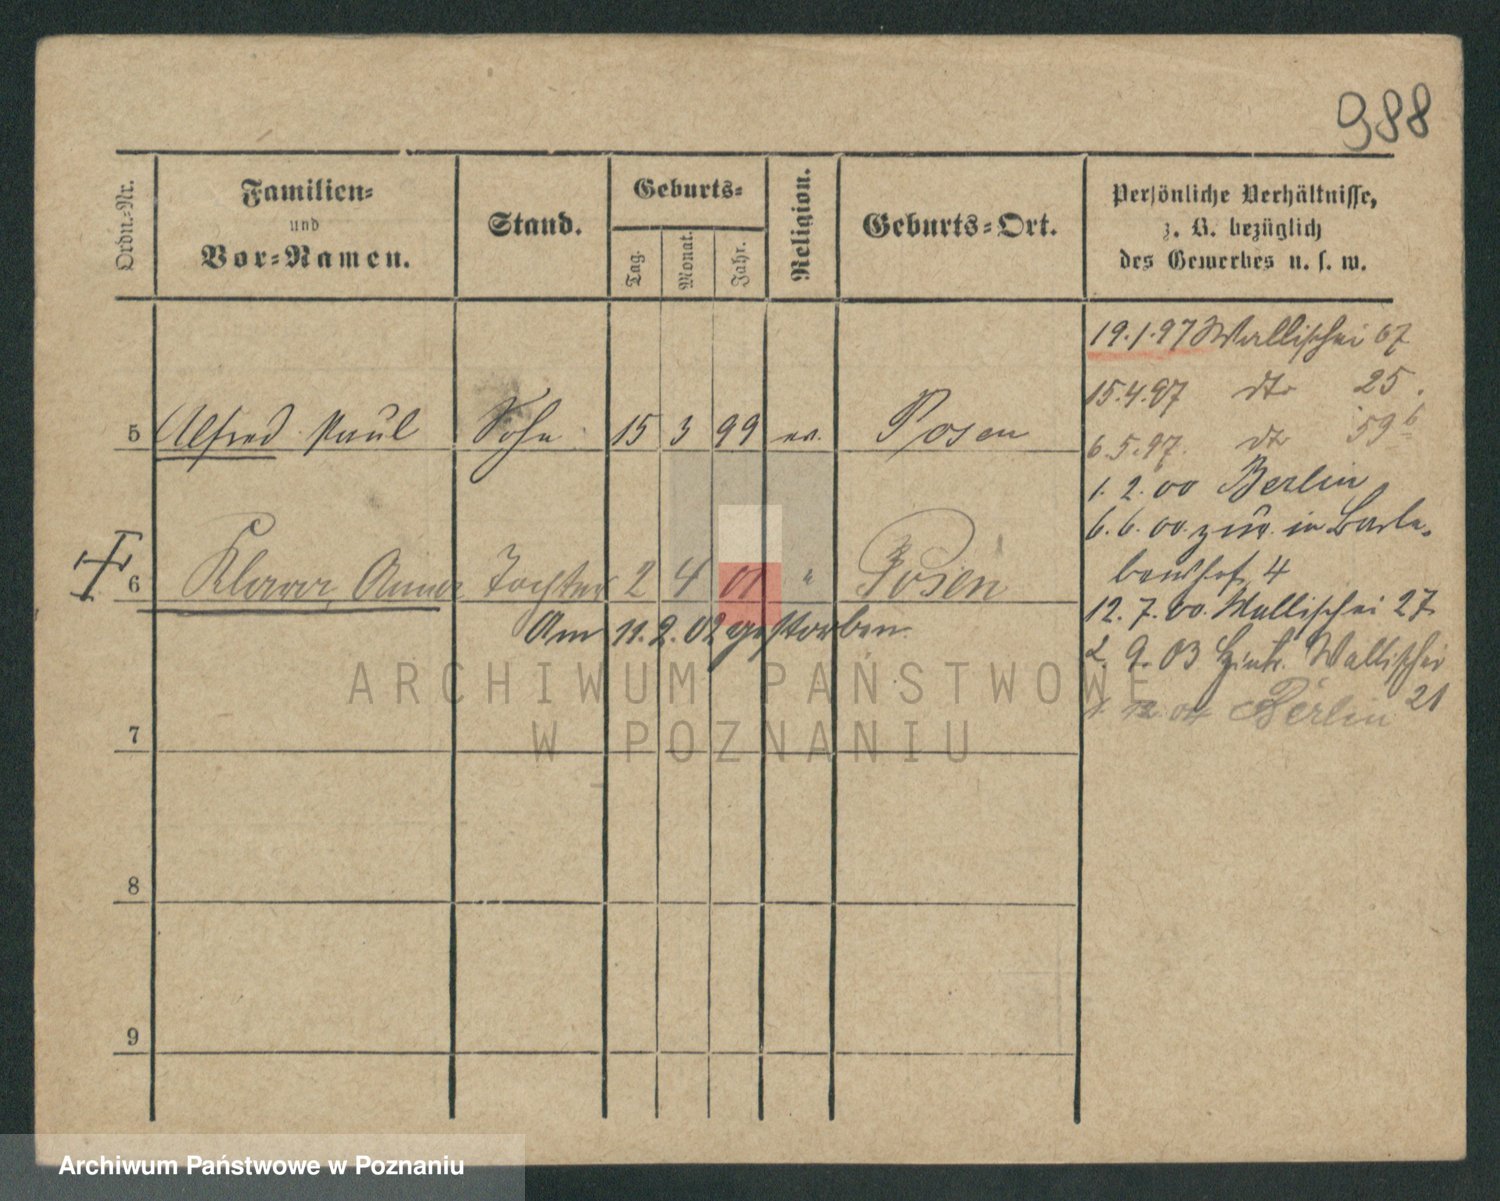 988
Ordn.-Nr.
Familien-
und
Vor-Namen.
Stand.
Geburts-
Tag.
Monat.
Jahr.
Religion.
Geburts-Ort.
Persönliche Verhältnisse,
z. B. bezüglich
des Gewerbes u. s. w.
19.1.97 Wallischei 67
15.4.97 dto 25
6.5.97. dto 59b
5 Alfred Paul Sohn 15 3 99 ev. Posen
1. 2. 00 Berlin
6. 6. 00. zur. in Barle-
benshof 4
6 Klara Anna Tochter 2 4 01 " Posen
12. 7. 00. Wallischei 27.
Am 11.2.02 gestorben.
2. 9. 03 Hint. Wallischei
21
1. 12. 04 Berlin
7
8
9
ARCHIWUM PAŃSTWOWE
W POZNANIU
Archiwum Państwowe w Poznaniu